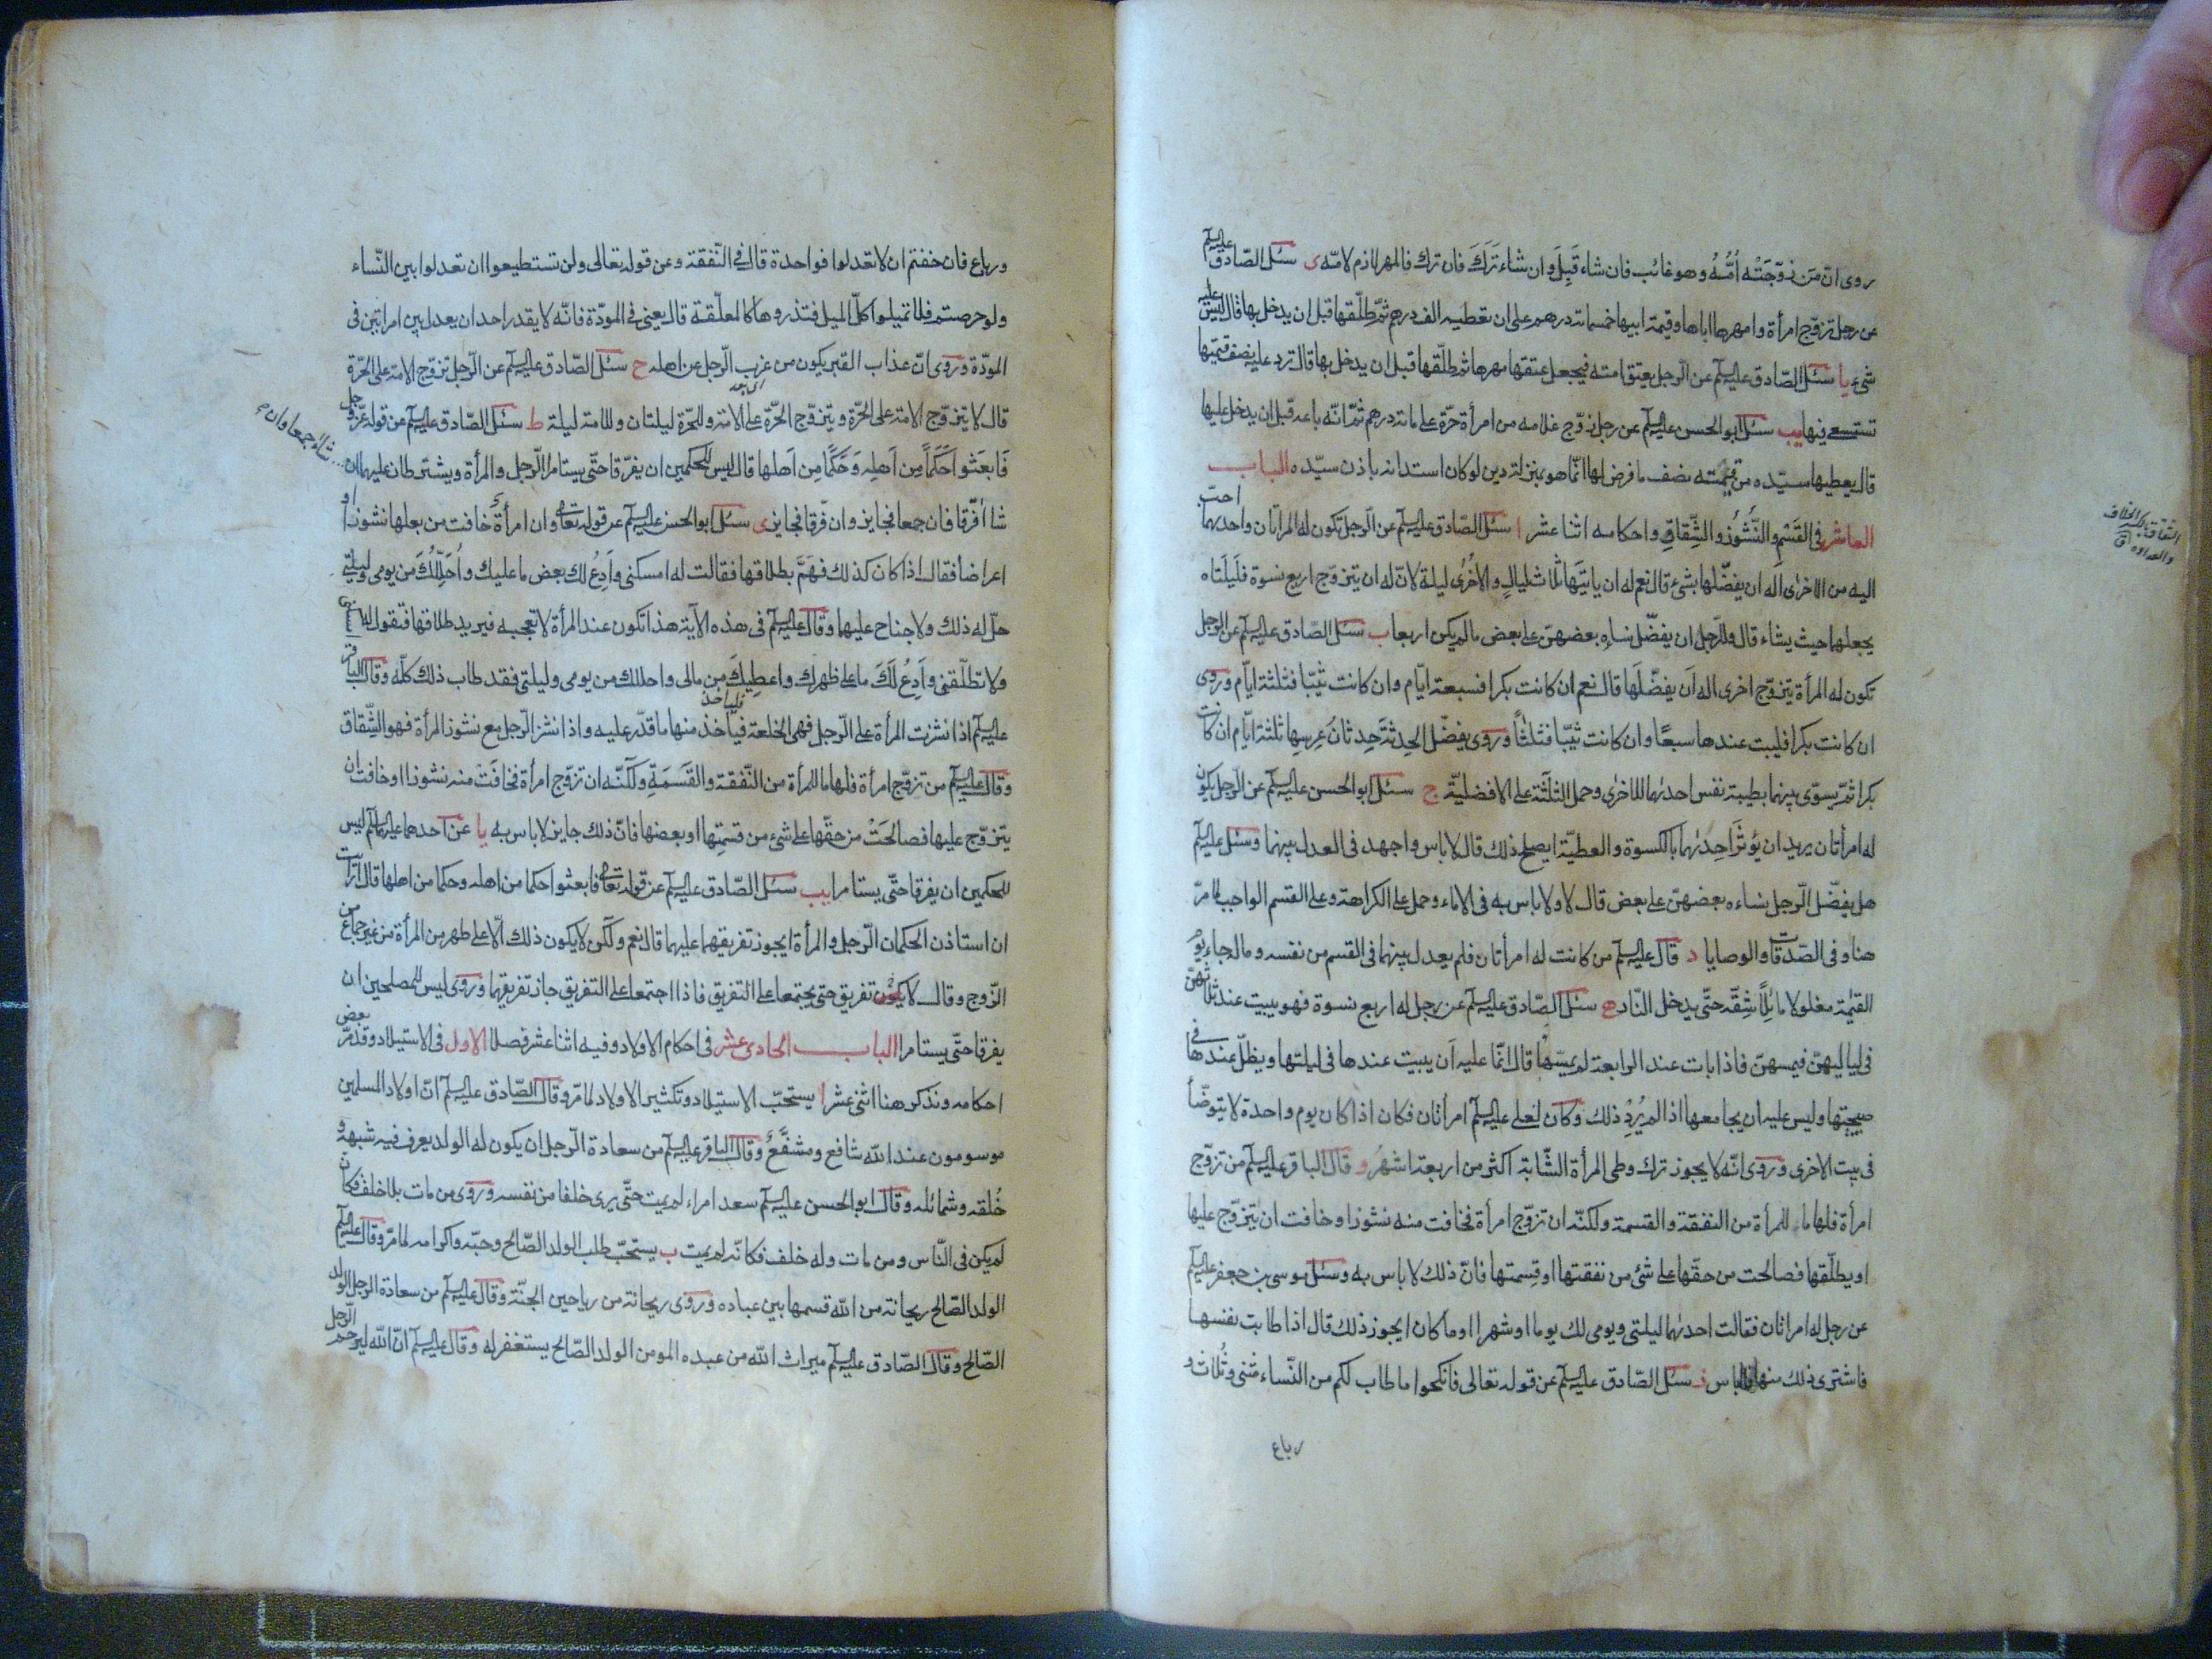 روى انّ من زوّجَتْه اُمُّهُ وهو غائب فان شاء قَبِلَ وان شاء تَرَكَ فان ترك فالمهر لازم لامّه ى سئل الصّادق عليه السلم
عن رجل تزوّج امرأة وامهرها اباها وقيمة ابيها خمسمائة درهم على ان تعطيه الف درهم ثمّ طلّقها قبل ان يدخل بها قال ليس عليه
شىء يا سئل الصّادق عليه السلم عن الرّجل يعتق امته فيجعل عتقها مهرها ثم طلّقها قبل ان يدخل بها قال ترد عليه نصف قيمتها
تستسعى فيها يب سئل ابو الحسن عليه السلم عن رجل زوّج غلامه من امرأة حرّة على مائة درهم ثمّ انّه باعه قبل ان يدخل عليها
قال يعطيها سيّده من قيمته نصف ما فرض لها انّما هو بمنزلة دين لو كان استدانه باذن سيّده الباب
العاشر فى القَسْمِ والنّشُوُز والشِّقاقِ واحكامه اثنا عشر ا سئل الصّادق عليه السلم عن الرّجل تكون له المراتان واحديهما احبّ
اليه من الاخرى اَله ان يفضّلها بشىء قال نعم له ان ياتيَها ثلاث ليالٍ والاخرى ليلة لانّ له ان يتزوّج اربع نسوة فلَيلَتاه
يجعلهما حيث يشاء قال وللرّجل ان يفضّل نساءه بعضهنّ على بعض ما لم يكن اربعا ب سئل الصّادق عليه السلم عن الرجل
تكون له المرأة يتزوّج اخرى اله اَن يفضّلَها قال نعم ان كانت بكرا فسبعة ايّام وان كانت ثيّبا فثلثة ايّام وروى
ان كانت بكرا فليبت عندها سبعًا وان كانت ثيّبا فثلثًا وروى يفضّل الحِدثةَ حِدثانَ عِرسِها ثلثة ايّام ان كانت
بكرا ثمّ يسوّى بينهما بطيبة نفس احديهما للاخرى وحمل الثلثة على الافضليّة ج سئل ابو الحسن عليه السلم عن الرّجل يكون
له امرأتان يريد ان يؤثرَ اِحديهما بالكسوة والعطيّة ايصلح ذلك قال لا باس واجهد فى العدل بينهما وسئل عليه السلم
هل يفضّل الرّجل نساءه بعضهنّ على بعض قال لا ولا باس به فى الاماء وحمل على الكراهة وعلى القسم الواجب لما مرّ
هنا وفى الصّدقات والوصايا د قال عليه السلم من كانت له امرأتان فلم يعدل بينهما فى القسم من نفسه وماله جاء يوم
القيمة مغلولا مائِلاً شِقّه حتّى يدخل النّار ه سئل الصّادق عليه السلم عن رجل له اربع نسوة فهو يبيت عند ثلاثهنّ
فى لياليهنّ فيمسهنّ فاذا بات عند الرابعة لم يمسّها قال انّما عليه اَن يبيت عندها فى ليلتها ويظلّ عندها فى
صبيحتها وليس عليه ان يجامعها اذا لم يُرِدْ ذلك وكان لعلى عليه السلم امرأتان فكان اذا كان يوم واحدة لا يتوضّأ
فى بيت الاخرى وروى انّه لا يجوز ترك وطى المرأة الشّابة اكثر من اربعة اشهر و قال الباقر عليه السلم من تزوّج
امرأة فلها ما للمرأة من النفقة والقسمة ولكنّه ان تزوّج امرأة فخافت منه نشوزا وخافت ان يتزوّج عليها
او يطلّقها فصالحت من حقّها على شىء من نفقتها او قِسمتها فانّ ذلك لا باس به وسئل موسى بن جعفر عليه السلم
عن رجل له امراتان فقالت احديهما ليلتى ويومى لك يوما او شهرا او ما كان ايجوز ذلك قال اذا طابت نفسها
فاشترى ذلك منها فلا باس ز سئل الصّادق عليه السلم عن قوله تعالى فانكحوا ما طاب لكم من النّساء مثنى وثُلاث و
رباع
الشقاق بالكسر الخلاف
والعداوة ق
ورباع فان خفتم ان لا تعدلوا فواحدة قال فى النّفقة وعن قوله تعالى ولن تستطيعوا ان تعدلوا بين النّساء
ولو حرصتم فلا تميلوا كلّ الميل فتذروها كالمعلّقة قال يعنى فى المودّة فانّه لا يقدر احد ان يعدل بين امراتين فى
المودّة وروى انّ عذاب القبر يكون من عزب الرّجل عن اهله ح سئل الصّادق عليه السلم عن الرّجل تزوّج الامة على الحرّة
قال لا يتزوّج الامة على الحرّة ويتزوّج الحرّة على الامة وللحرّة ليلتان وللامة ليلة ط سئل الصّادق عليه السلم عن قوله عزّ وجل
فَابعَثوا حَكَماً مِن اَهلِهِ وَحَكَمًا مِن اَهلها قال ليس للحكمين ان يفرّقا حتّى يستامرا الرّجل والمرأة ويشترطان عليهما ان
شاء جمعا وان
شاا فرّقا فان جمعا فجايز وان فرّقا فجايز ى سئل ابو الحسن عليه السلم عن قوله تعالى وان امرأة خافت من بعلها نشوزا او
اعراضا فقال اذا كان كذلك فهَمَّ بطلاقها فقالت له امسكنى واَدِعُ لك بعض ما عليك واُحَلِّلُكَ من يومى وليلتى
حلّ له ذلك ولا جناح عليهما وقال عليه السلم فى هذه الآية هذا تكون عند المرأة لا تعجبه فيريد طلاقها فتقول له امسكنى
ولا تطلّقنى واَدِعُ لَكَ ما على ظهرك واعطِيكَ مِن مالى واحللك من يومى وليلتى فقد طاب ذلك كلّه وقال الباقر
عليه السلم اذا نشزت المرأة على الرّجل فهى الخلعة فيأخذ منها ما قدّر عليه واذا نشز الرّجل مع نشوز المرأة فهو الشِّقاق
وقال عليه السلم من تزوّج امرأة فلها ما للمرأة من النّفقة والقَسَمَةِ ولكنّه ان تزوّج امرأة فخافَتْ منه نشوزا او خافت ان
يتزوّج عليها فصالحَتْ من حقّها على شىء من قسمتِها او بعضها فانّ ذلك جايز لا باس به يا عن احدهما عليهما السلم ليس
للحكمين ان يفرقا حتّى يستامرا يب سئل الصّادق عليه السلم عن قوله تعالى فابعثوا حكما من اهله وحكما من اهلها قال ارأيت
ان استاذن الحكمان الرّجل والمرأة ايجوز تفريقهما عليهما قال نعم ولكن لا يكون ذلك الّا على طهر من المرأة من غير جماع من
الزّوج وقال لا يكون تفريق حتى يجتمعا على التفريق فاذا اجتمعا على التفريق جاز تفريقهما وروى ليس للمصلحين ان
يفرقا حتّى يستامرا الباب الحادى عشر فى احكام الاولاد وفيه اثنا عشر فصلا الاول فى الاستيلاد وقد مرّ بعض
احكامه ونذكر هنا اثنى عشر ا يستحبّ الاستيلاد وتكثير الاولاد لما مرّ وقال الصّادق عليه السلم انّ اولاد المسلمين
موسومون عند الله شافع ومشفَّعٌ وقال الباقر عليه السلم من سعادة الرّجل ان يكون له الولد يعرف فيه شبهه و
خُلقه وشمائله وقال ابو الحسن عليه السلم سعد امراء لم يمت حتّى يرى خلفا من نفسه وروى من مات بلا خلف فكان
لم يكن فى النّاس ومن مات وله خلف فكانّه لم يمت ب يستحبّ طلب الولد الصّالح وحبّه واكرامه لما مرّ وقال عليه السلم
الولد الصّالح ريحانة من الله قسمها بين عباده وروى ريحانة من رياحين الجنّة وقال عليه السلم من سعادة الرجل الولد
الصّالح وقال الصّادق عليه السلم ميراث الله من عبده المومن الولد الصّالح يستغفر له وقال عليه السلم انّ الله ليرحم الرّجل